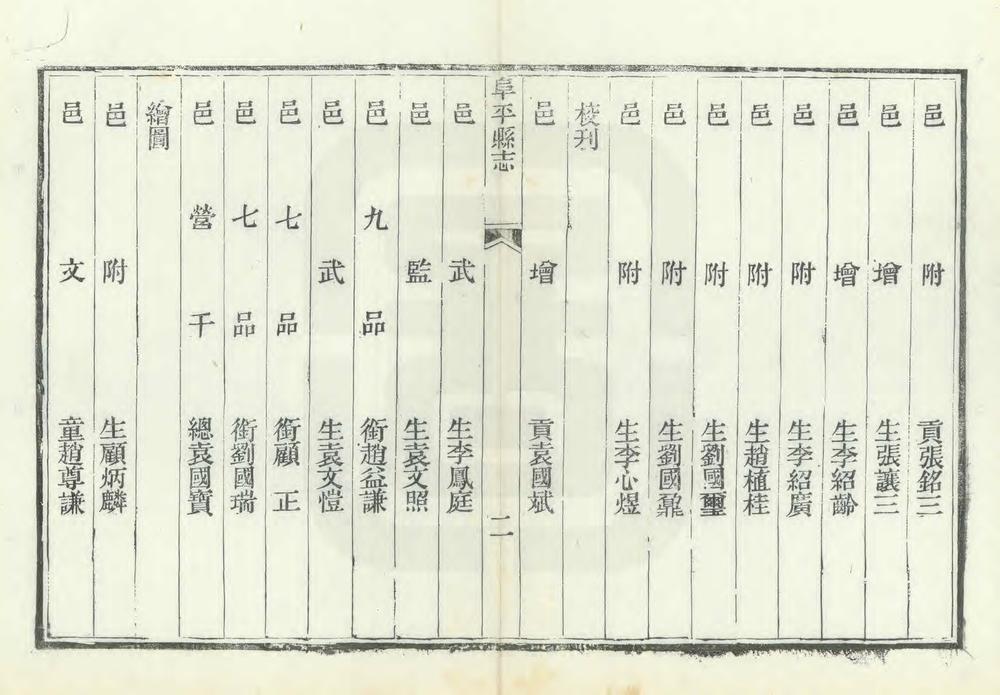 邑附貢張銘三
邑增生張讓三
邑增生李紹齡
邑附生李紹廣
邑附生趙植桂
邑附生劉國璽
邑附生劉國鼐
邑附生李心煜
校刋
邑增貢袁國斌
阜平縣志 二
邑武生李鳳庭
邑監生袁文照
邑九品銜趙益謙
邑武生袁文愷
邑七品銜顧正
邑七品銜劉國瑞
邑營千總袁國寶
繪圖
邑附生顧炳麟
邑文童趙尊謙